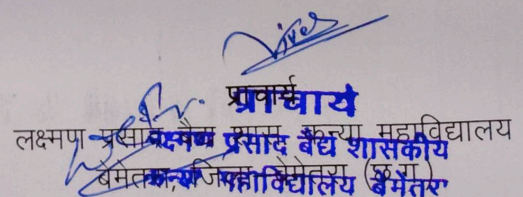 प्राचार्य
प्राचार्य
लक्ष्मण प्रसाद बैद्य शास. कन्या महाविद्यालय
लक्ष्मण प्रसाद बैद्य शासकीय
बेमेतरा, जिला बेमेतरा (छ.ग.)
कन्या महाविद्यालय बेमेतरा